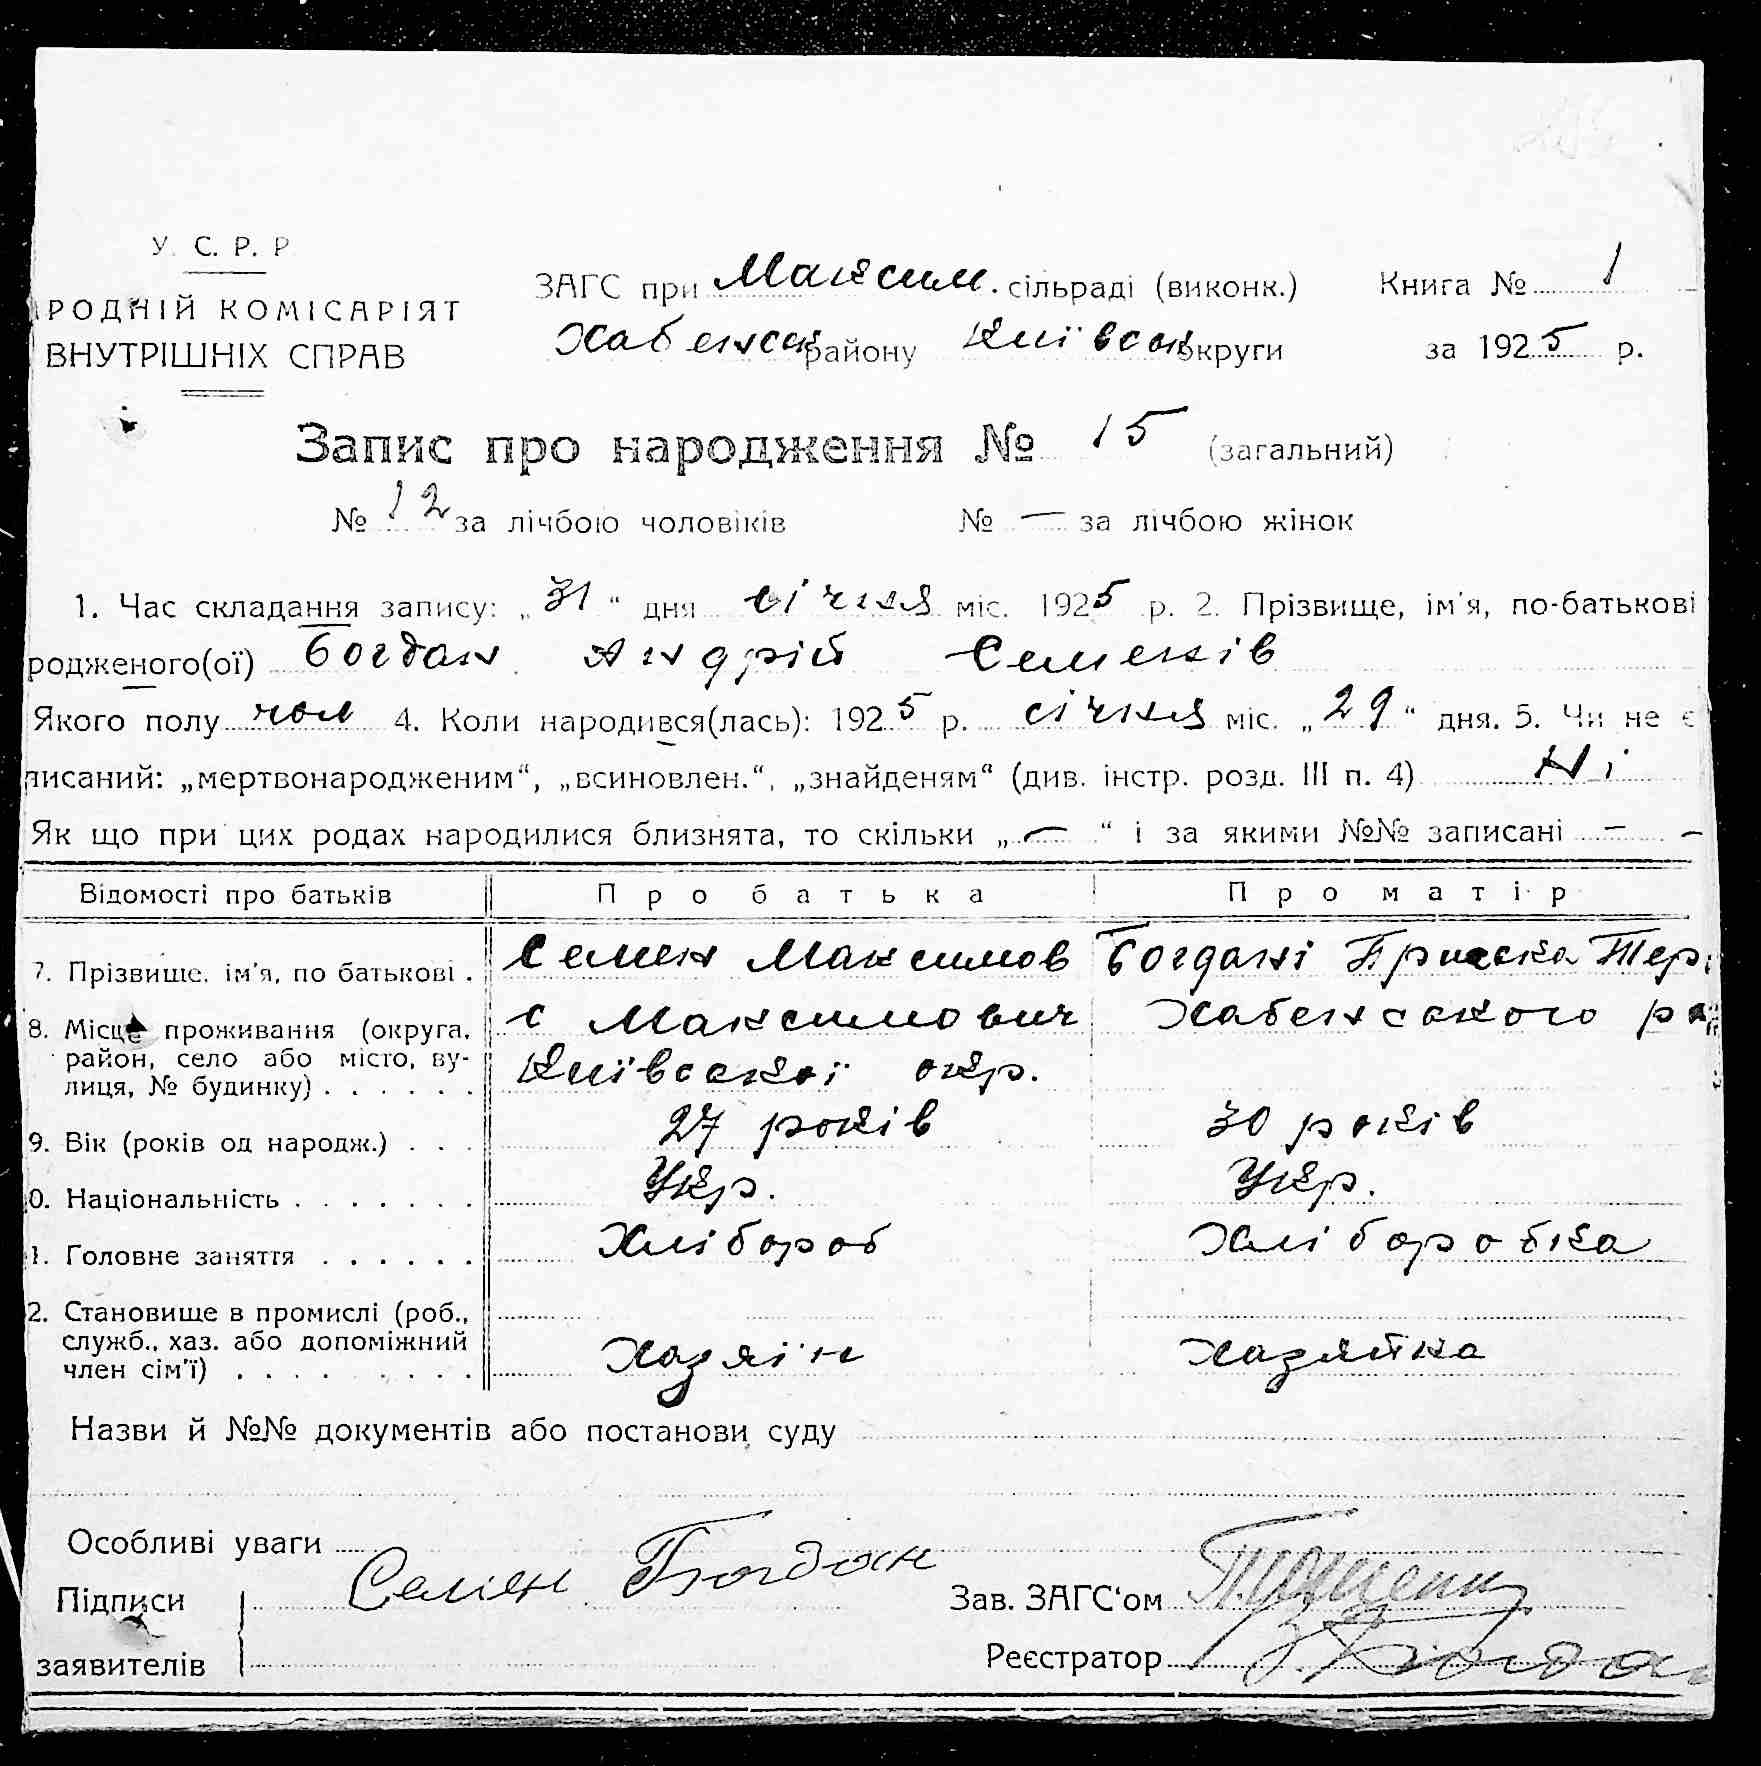 У. С. Р. Р
РОДНІЙ КОМІСАРІЯТ
ВНУТРІШНІХ СПРАВ
ЗАГС при Максим. сільраді (виконк.) Книга № 1
Хабенськ району Київськ округи за 1925 р.
Запис про народження № 15 (загальний)
№ 12 за лічбою чоловіків № — за лічбою жінок
1. Час складання запису: „31“ дня січня міс. 1925 р. 2. Прізвище, ім'я, по-батькові
родженого(ої) Богдан Андрій Семенів
Якого полу чол 4. Коли народився(лась): 1925 р. січня міс. „29“ дня. 5. Чи не є
писаний: „мертвонародженим“, „всиновлен.“, „знайденям“ (див. інстр. розд. III п. 4) Ні
Як що при цих родах народилися близнята, то скільки „—“ і за якими №№ записані — —
Відомості про батьків Про батька Про матір
7. Прізвище, ім'я, по батькові . Семен Максимов Богдані Приска Тер
8. Місце проживання (округа, с Максимович Хабенського ра
район, село або місто, ву- Київської окр.
лиця, № будинку) . . . . . .
9. Вік (років од народж.) . . . 27 років 30 років
0. Національність . . . . . . . Укр. Укр.
1. Головне заняття . . . . . . Хлібороб Хліборобка
2. Становище в промислі (роб.,
служб., хаз. або допоміжний Хазяїн Хазяйка
член сім'ї) . . . . . . . . .
Назви й №№ документів або постанови суду
Особливі уваги
Підписи Семен Богдан Зав. ЗАГС'ом
заявителів Реєстратор